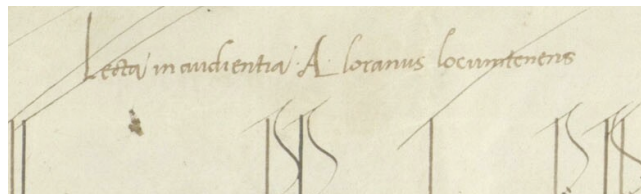 Lecta in audientia A. loranus locumtenens